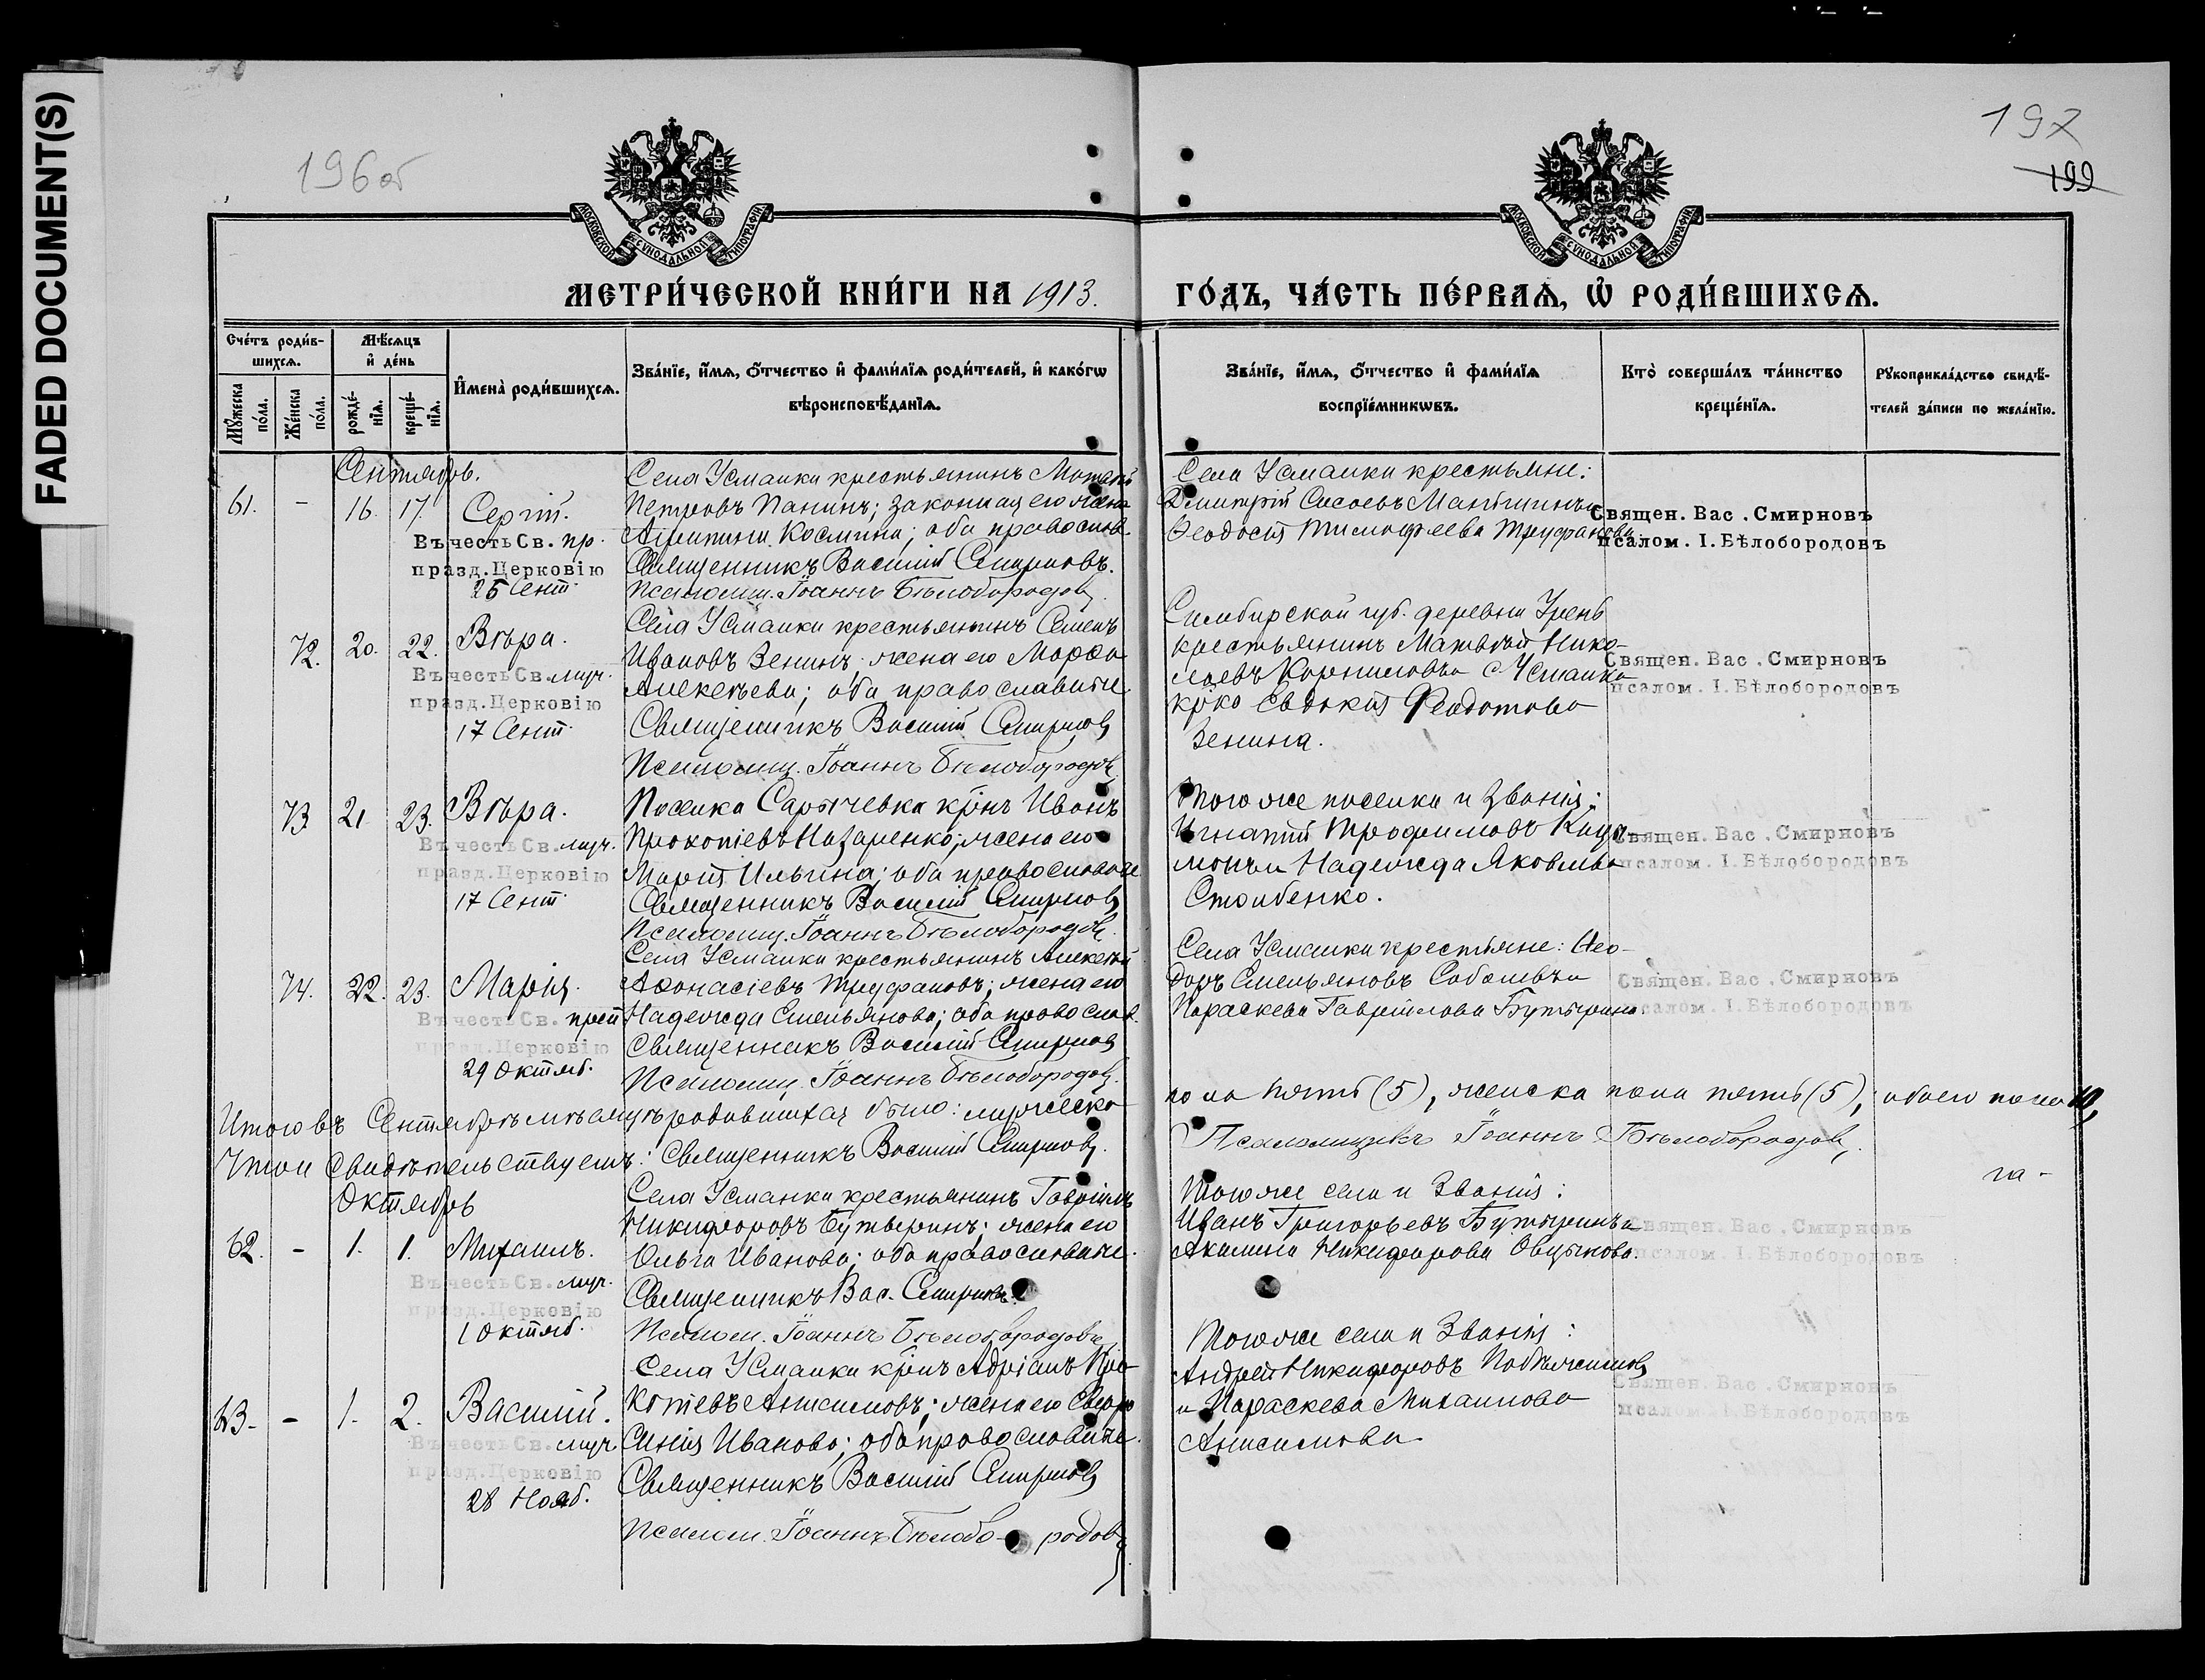 FADED DOCUMENT(S)
196об
197
199
МОСКОВСКОЙ СѴНОДАЛЬНОЙ ТИПОГРАФІИ
МОСКОВСКОЙ СѴНОДАЛЬНОЙ ТИПОГРАФІИ
МЕТРИ́ЧЕСКОЙ КНИ́ГИ НА 1913.
ГО́ДЪ, ЧА́СТЬ ПЕ́РВАѦ, Ѡ҆ РОДИ́ВШИХСѦ.
Сче́тъ роди́в-
шихсѧ.
Мꙋ́жеска по́ла.
Же́нска по́ла.
Мѣ́сѧцъ
и҆ де́нь
рожде́-
нїѧ.
креще́-
нїѧ.
И҆мена̀ роди́вшихсѧ.
Зва́нїе, и҆́мѧ, ѻ҆́тчество и҆ фами́лїѧ роди́телей, и҆ како́гѡ
вѣроисповѣ́данїѧ.
Зва́нїе, и҆́мѧ, ѻ҆́тчество и҆ фами́лїѧ
воспрїе́мникѡвъ.
Кто̀ соверша́лъ та́инство
креще́нїѧ.
Рꙋкоприкла́дство свидѣ́-
телей за́писи по жела́нїю.
Сентябрь.
61. - 16. 17. Сергій.
Въ честь Св. пр.
празд. Церковію
25 Сент.
Села Усманки крестьянинъ
Петровъ Панинъ; законная его жена
Агрипина Космина; оба православ.
Священникъ Василій Смирновъ.
Псаломщ. Іоаннъ Бѣлобородовъ.
Села Усманки крестьяне:
Димитрій Сисоевъ и
Ѳеодосія Тимофеева Труфанова.
Священ. Вас. Смирновъ
псалом. І. Бѣлобородовъ
72. 20. 22. Вѣра.
Въ честь Св. муч.
празд. Церковію
17 Сент.
Села Усманки крестьянинъ Семенъ
Ивановъ Зенинъ; жена его Марѳа
Алексѣева; оба православные.
Священникъ Василій Смирновъ
Псаломщ. Іоаннъ Бѣлобородовъ.
Симбирской губ. деревни Урень
крестьянинъ Матвѣй Нико-
лаевъ Корниловъ и с. Усманки
кр‑ка Евдокія Феодотова
Зенина.
Священ. Вас. Смирновъ
псалом. І. Бѣлобородовъ
73. 21 23. Вѣра.
Въ честь Св. муч.
празд. Церковію
17 Сент.
Поселка Сарычевка кр‑нъ Иванъ
Прокопіевъ Назаренко; жена его
Марія Ильина; оба православные
Священникъ Василій Смирновъ
Псаломщ. Іоаннъ Бѣлобородовъ.
Того же поселка и званія:
Игнатій Трофимовъ
и Надежда Яковлева
Столбенко.
Священ. Вас. Смирновъ
псалом. І. Бѣлобородовъ
74. 22. 23. Марія.
Въ честь Св. преп
празд. Церковію
29 Октяб.
Села Усманки крестьянинъ Алексѣй
Аѳонасіевъ Труфановъ; жена его
Надежда Емельянова; оба православ.
Священникъ Василій Смирновъ
Псаломщ. Іоаннъ Бѣлобородовъ.
Села Усманки крестьяне: Ѳео-
доръ Емельяновъ Соболевъ и
Параскева Гавріилова Бутырина.
Священ. Вас. Смирновъ
псалом. І. Бѣлобородовъ
Итого въ Сентябрѣ мѣсяцѣ родившихся было: мужеска
пола пять (5), женска пола пять (5), обоего пола 10,
Что и свидѣтельствуемъ: Священникъ Василій Смирновъ.
Псаломщикъ Іоаннъ Бѣлобородовъ.
Октябрь
62. - 1. 1. Михаилъ.
Въ честь Св. муч.
празд. Церковію
1 Октяб.
Села Усманки крестьянинъ Гавріилъ
Никифоровъ Бутыринъ; жена его
Ольга Иванова; оба православные.
Священникъ Вас. Смирновъ.
Псалом. Іоаннъ Бѣлобородовъ
Того же села и званія:
Иванъ Григорьевъ Бутыринъ и
Акилина Никифорова Овчинкова.
Священ. Вас. Смирновъ
псалом. І. Бѣлобородовъ
63. - 1. 2. Василій.
Въ честь Св. муч.
празд. Церковію
28 Нояб.
Села Усманки кр‑нъ Адріанъ Про-
копіевъ Анисимовъ; жена его Евфро
синія Иванова; оба православные.
Священникъ Василій Смирновъ
Псалом. Іоаннъ Бѣлобо- родовъ
Того же села и званія:
Андрей Никифоровъ
и Параскева Михаилова
Анисимова
Священ. Вас. Смирновъ
псалом. І. Бѣлобородовъ